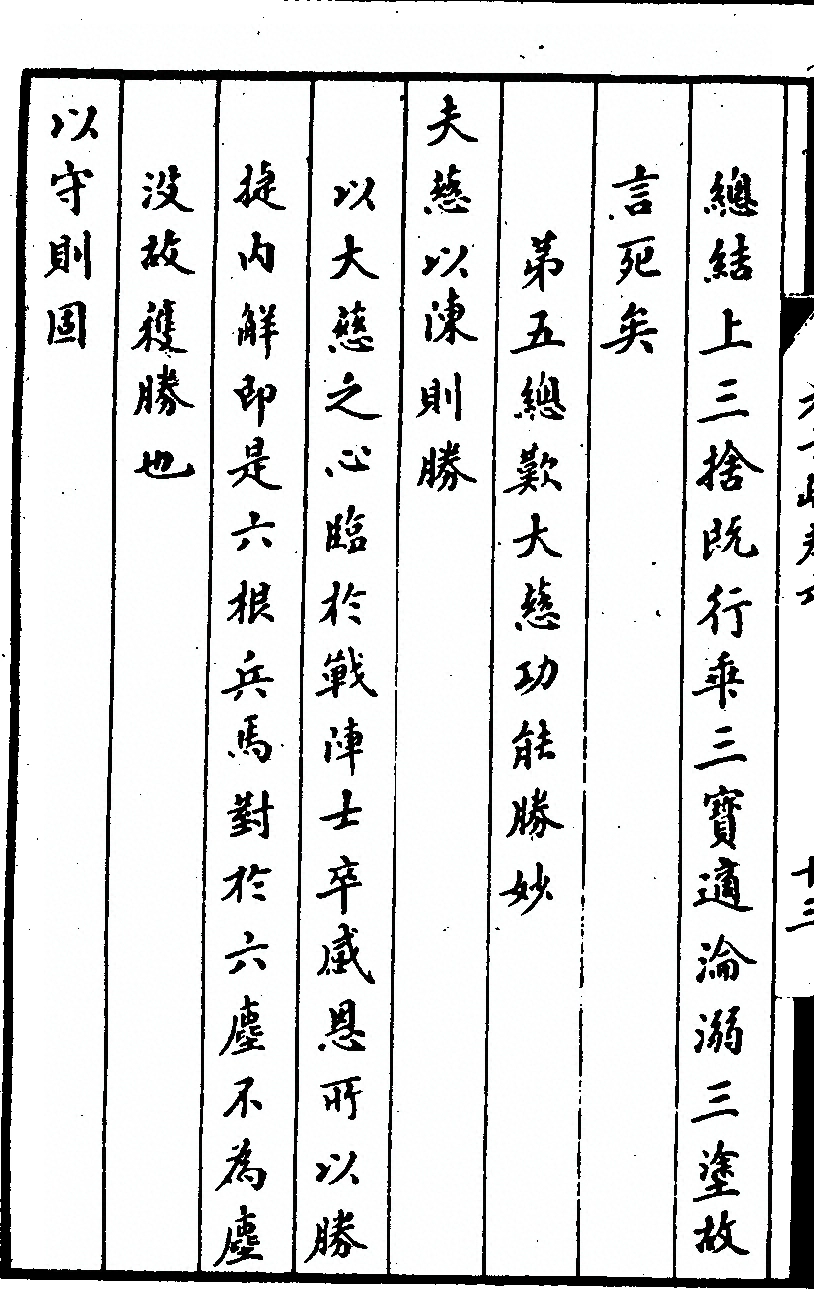 總結上三捨既行乖三寶適淪溺三塗故
言死矣
第五總歎大慈功能勝妙
夫慈以陳則勝
以大慈之心臨於戰陣士卒感恩所以勝
捷內解即是六根兵馬對於六塵不為塵
没故獲勝也
以守則固